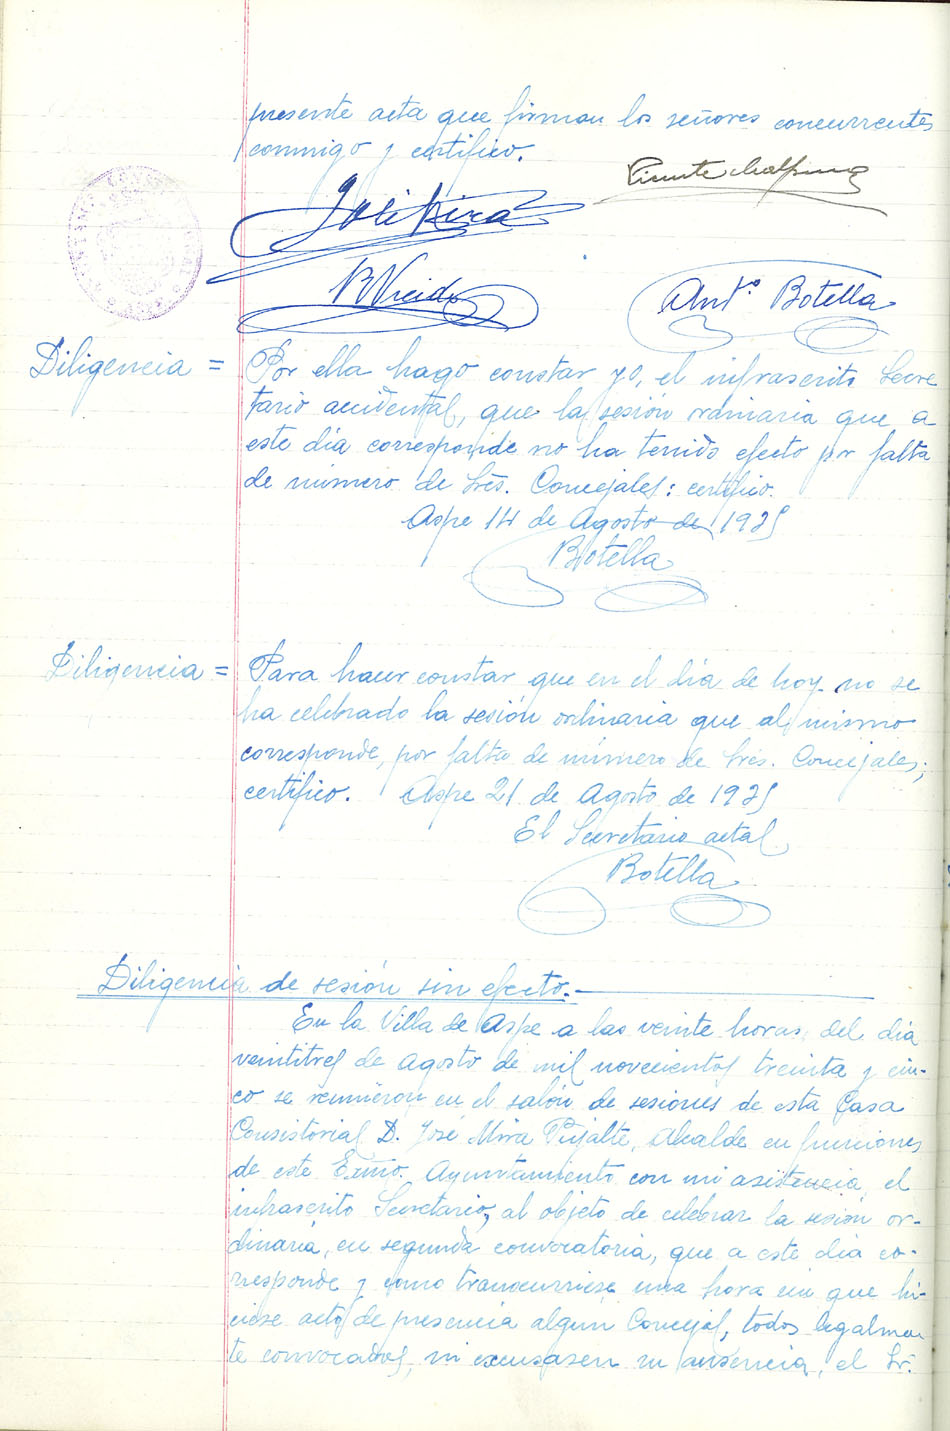 presente acta que firman los señores concurrentes
conmigo y certifico.
José Mira
Vicente
B Vicedo
Antº. Botella
Diligencia = Por ella hago constar yo, el infrascrito Secre
tario accidental, que la sesión ordinaria que a
este día corresponde no ha tenido efecto por falta
de número de Srês. Concejales: certifico.
Aspe 14 de Agosto de 1935
Botella
Diligencia = Para hacer constar que en el día de hoy no se
ha celebrado la sesión ordinaria que al mismo
corresponde, por falta de número de Srês. Concejales;
certifico. Aspe 21 de Agosto de 1935
El Secretario actal
Botella
Diligencia de sesión sin efecto.-
En la Villa de Aspe a las veinte horas, del día
veintitres de Agosto de mil novecientos treinta y cin-
co se reunieron en el salón de sesiones de esta Casa
Consistorial D. José Mira Pujalte, Alcalde en funciones
de este Exmo. Ayuntamiento con mi asistencia, el
infrascrito Secretario, al objeto de celebrar la sesión or-
dinaria, en segunda convocatoria, que a este día co-
rresponde y como transcurriese una hora sin que hi-
ciese acto de presencia algun Concejal, todos legalmen
te convocados, ni excusasen su ausencia, el Sr.